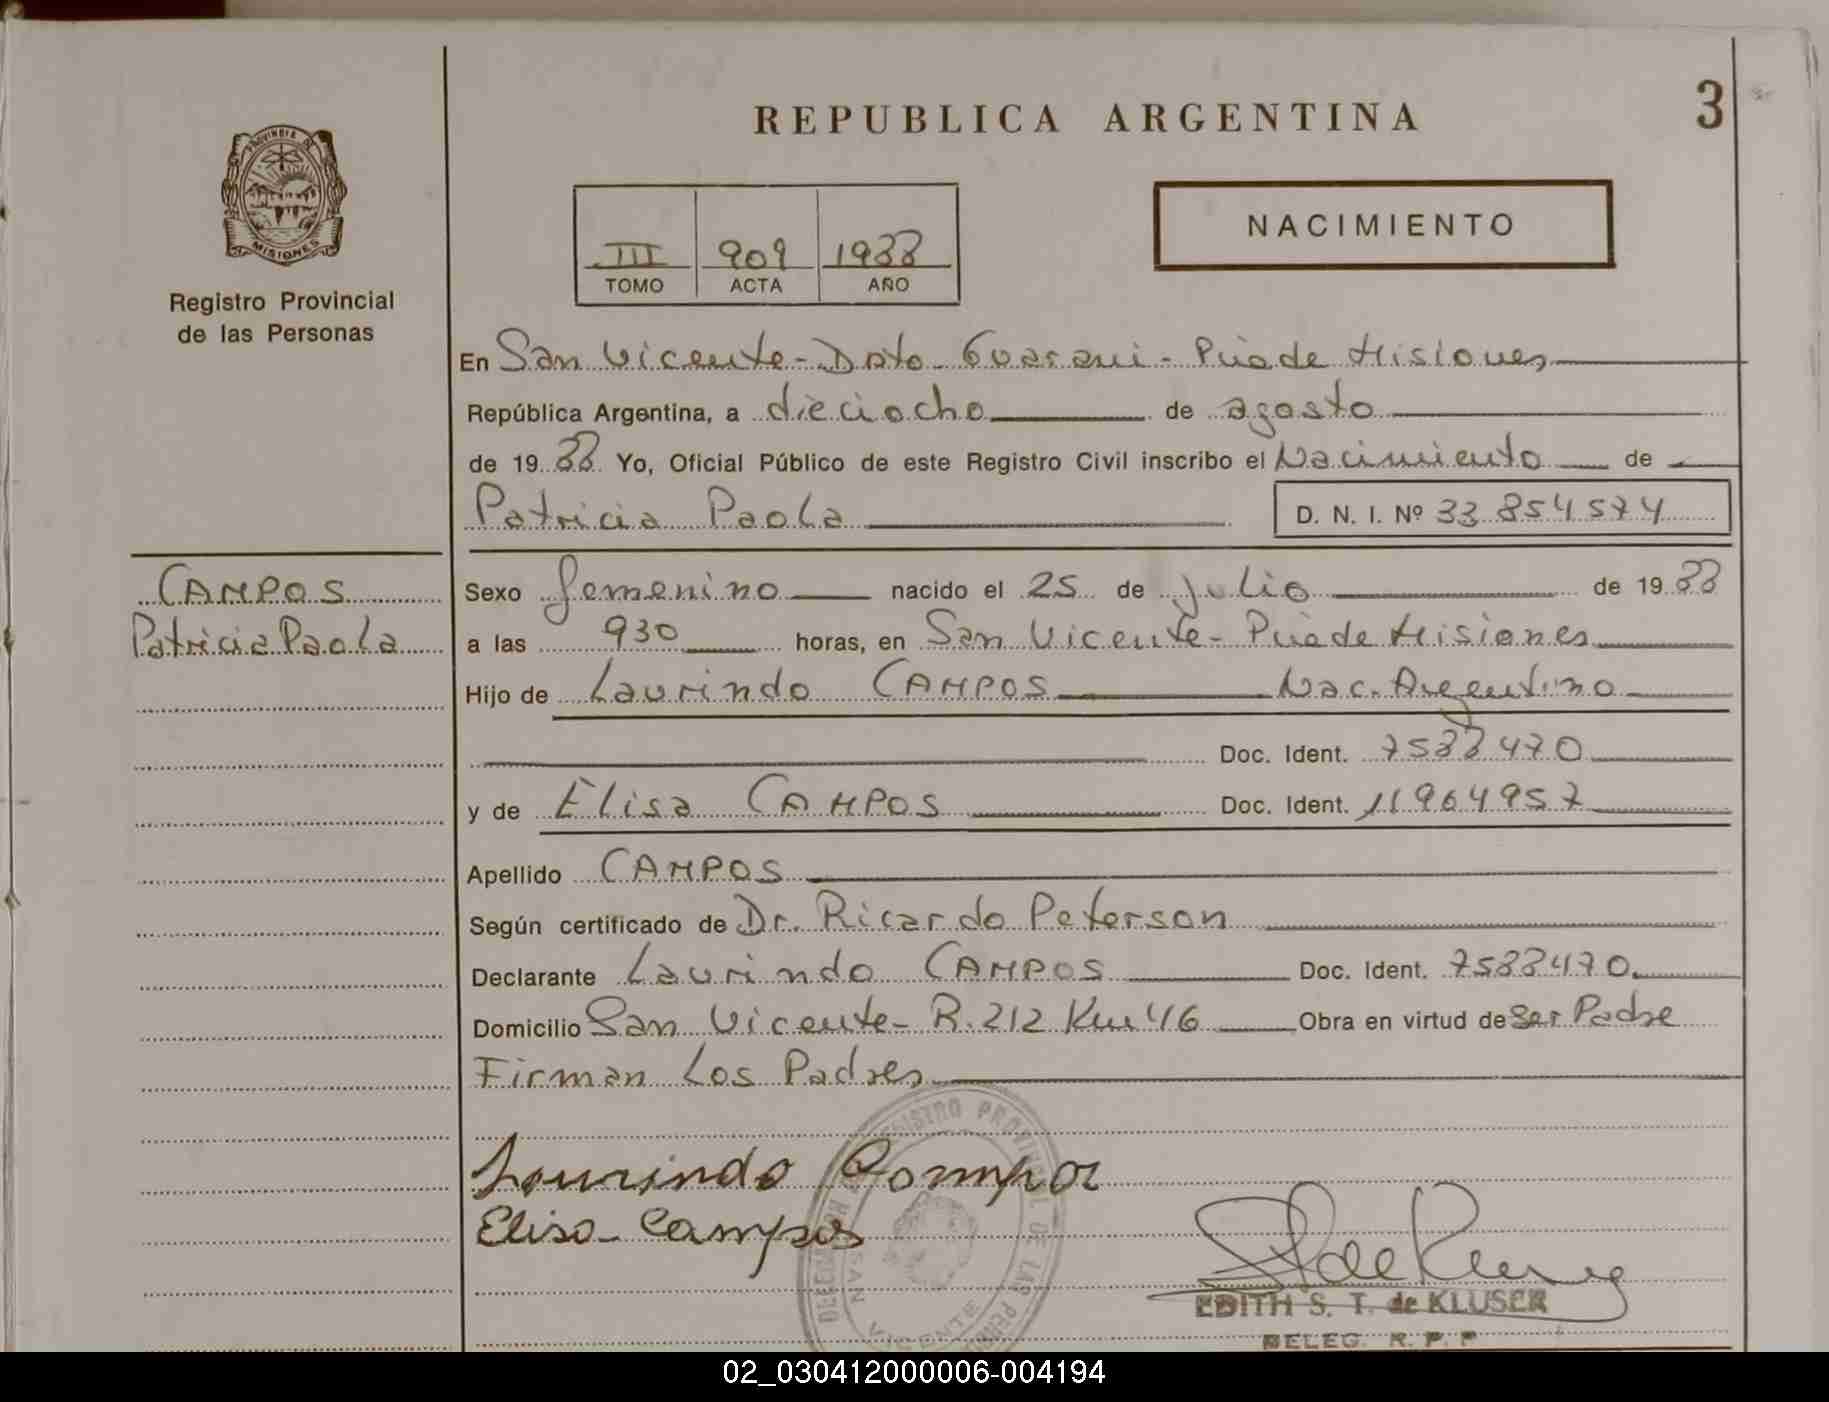 REPUBLICA ARGENTINA
3
PROVINCIA DE
MISIONES
Registro Provincial
de las Personas
NACIMIENTO
III 909 1988
TOMO ACTA AÑO
En San Vicente - Dpto Guarani - Pcia de Misiones
República Argentina, a dieciocho de agosto
de 1988 Yo, Oficial Público de este Registro Civil inscribo el Nacimiento de
Patricia Paola D. N. I. Nº 33 854 574
CAMPOS
Patricia Paola
Sexo femenino nacido el 25 de julio de 1988
a las 930 horas, en San Vicente - Pcia de Misiones
Hijo de Laurindo CAMPOS Nac. Argentino
Doc. Ident. 7588470
y de Elisa CAMPOS Doc. Ident. 11964957
Apellido CAMPOS
Según certificado de Dr. Ricardo Peterson
Declarante Laurindo CAMPOS Doc. Ident. 7588470
Domicilio San Vicente - R. 212 Km 46 Obra en virtud de Ser Padre
Firman Los Padres
Laurindo Campos
Elisa Campos
REGISTRO PROVINCIAL DE LAS
SAN VICENTE
EDITH S. T. de KLUSER
DELEG. R. P. P
02_030412000006-004194